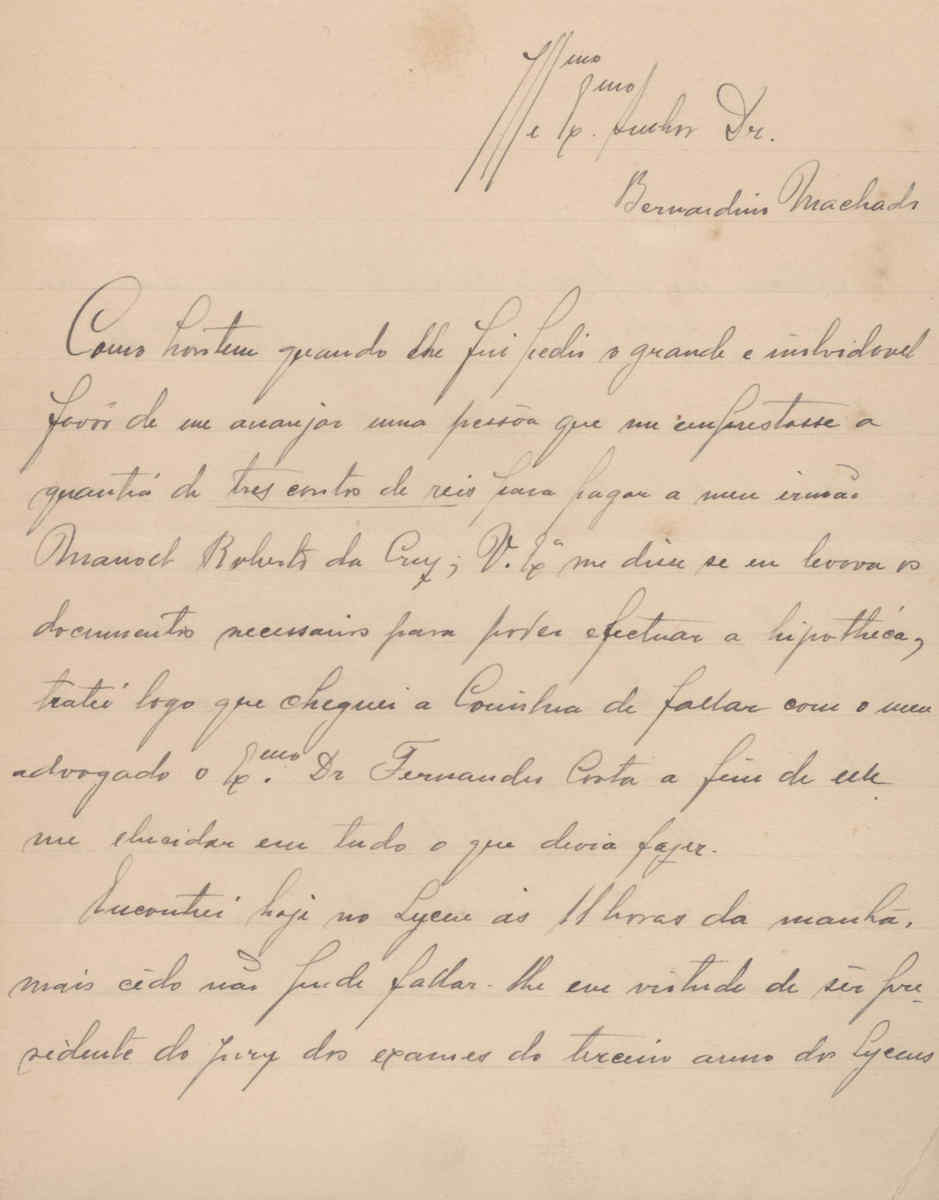 Illmo e Exmo Senhor Dr.
Bernardino Machado
Como hontem quando lhe fui pedir o grande e inolvidavel
favôr de me arranjar uma pessôa que m'emprestasse a
quantiá de tres contos de reis para pagar a meu irmão
Manoel Roberto da Cruz; V. Exª me disse se eu levava os
documentos necessarios para poder efectuar a hipothéca,
tratei logo que cheguei a Coimbra de fallar com o meu
advogado o Ex.mo Dr Fernandes Costa a fim de elle
me elucidar em tudo o que devia fazer.
Encontrei hoje no Lyceu ás 11 horas da manhã,
mais cêdo não pude fallar-lhe em virtude de sêr pre-
sidente do jury dos exames do terceiro anno dos Lyceus